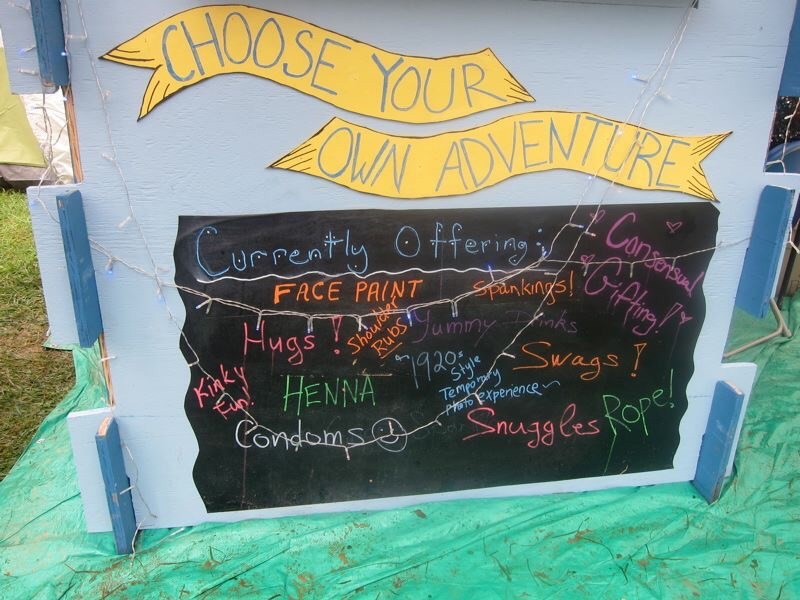 CHOOSE YOUR
OWN ADVENTURE
Currently Offering:
Consensual
Gifting!
FACE PAINT
Spankings!
Hugs!
Shoulder
Rubs
Yummy Drinks
~1920s
Style
Temporary
photo experience~
Swags!
Kinky
Fun!
HENNA
Condoms
Snuggles
Rope!